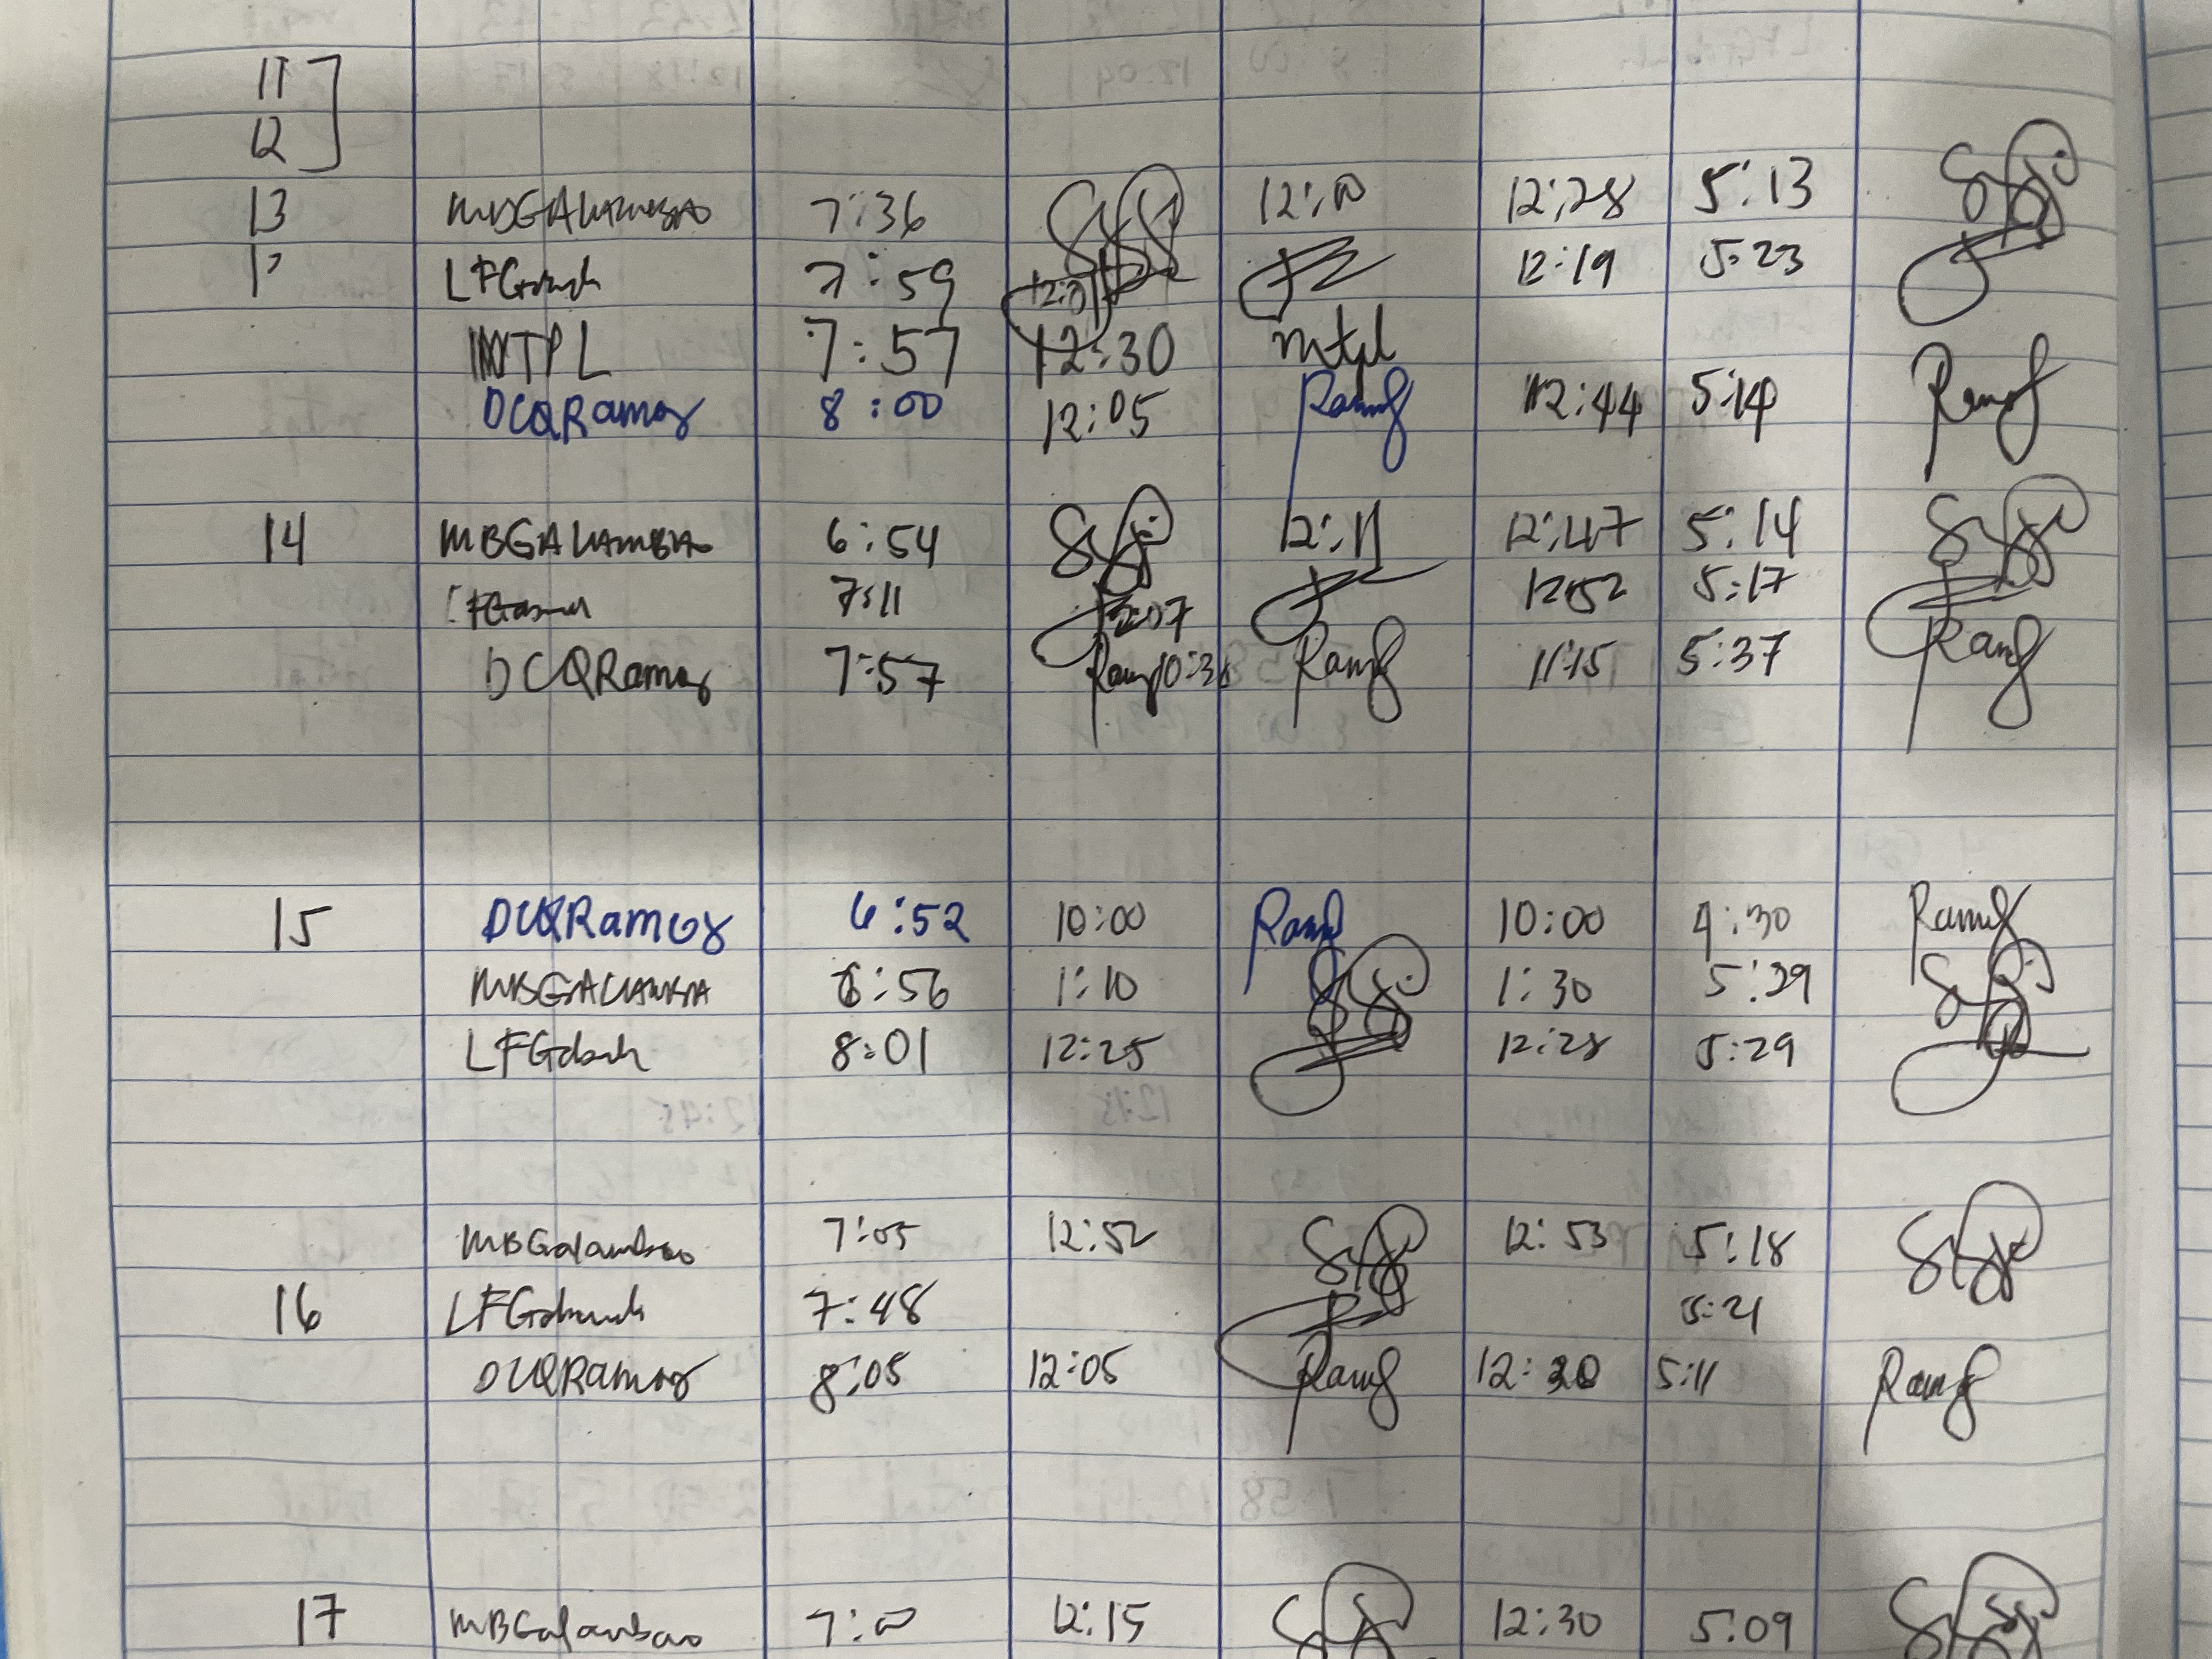 11
12
13 MBGALAMBAO 7:36 12:10 12:28 5:13
LFG 7:59 12:19 5:23
MTPL 7:57 12:30 mtpl
DCQRamos 8:00 12:05 Ramos 12:44 5:14 Ramos
14 MBGALAMBAO 6:54 12:11 12:47 5:14
7:11 12:07 12:52 5:17
DCQRamos 7:57 Ramos Ramos 11:15 5:37 Ramos
15 DCQRamos 6:52 10:00 Ramos 10:00 4:30 Ramos
MBGALAMBAO 6:56 1:10 1:30 5:39
LFG 8:01 12:25 12:28 5:29
MBGalambao 7:05 12:52 12:53 5:18
16 LFG 7:48 5:21
DCQRamos 8:05 12:05 Ramos 12:30 5:11 Ramos
17 MBGalambao 7:00 12:15 12:30 5:09